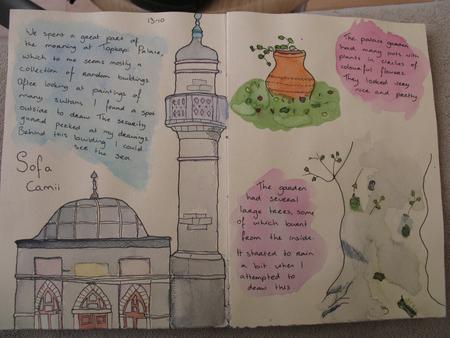 13-10
We spent a great part of
the morning at Topkapi Palace,
which to me seems mostly a
collection of random buildings.
After looking at paintings of
many sultans I found a spot
outside to draw. The security
guard peeked at my drawings.
Behind this building I could
see the sea.
Sofa
Camii
The palace garden
had many pots with
plants in circles of
colourful flowers.
They looked very
nice and pretty
The garden
had several
large trees, some
of which burnt
from the inside.
It started to rain
a bit when I
attempted to
draw this